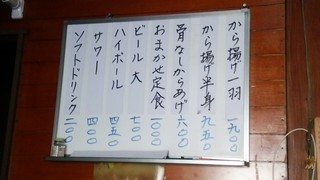 から揚げ一羽 一九〇〇
から揚げ半身 九五〇
骨なしからあげ 六〇〇
おまかせ定食 一〇〇〇
ビール 大 七〇〇
ハイボール 四五〇
サワー 四〇〇
ソフトドリンク 二〇〇